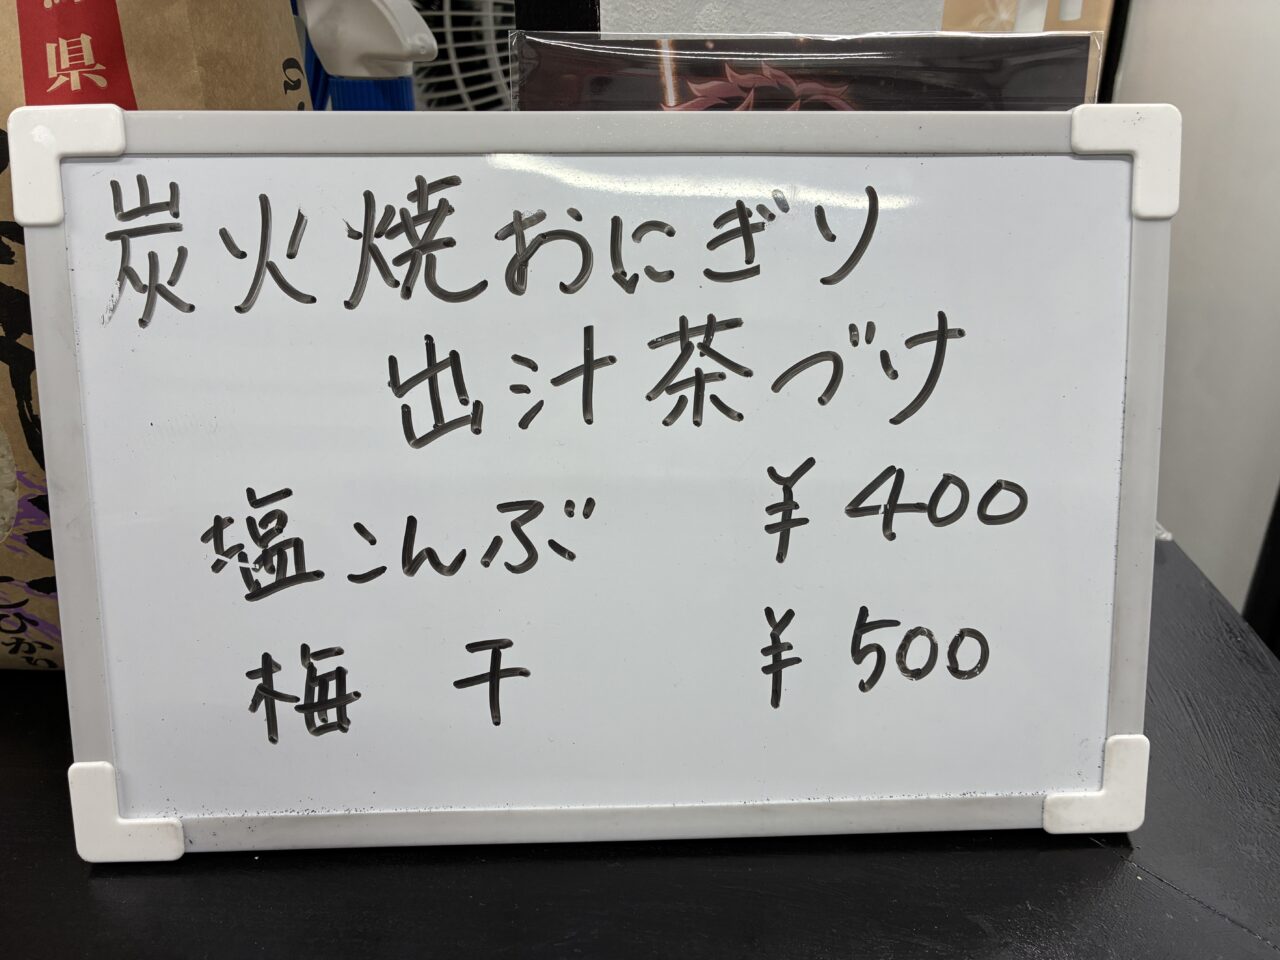 県
炭火焼おにぎり
出汁茶づけ
塩こんぶ ¥400
梅干 ¥500
ひかり